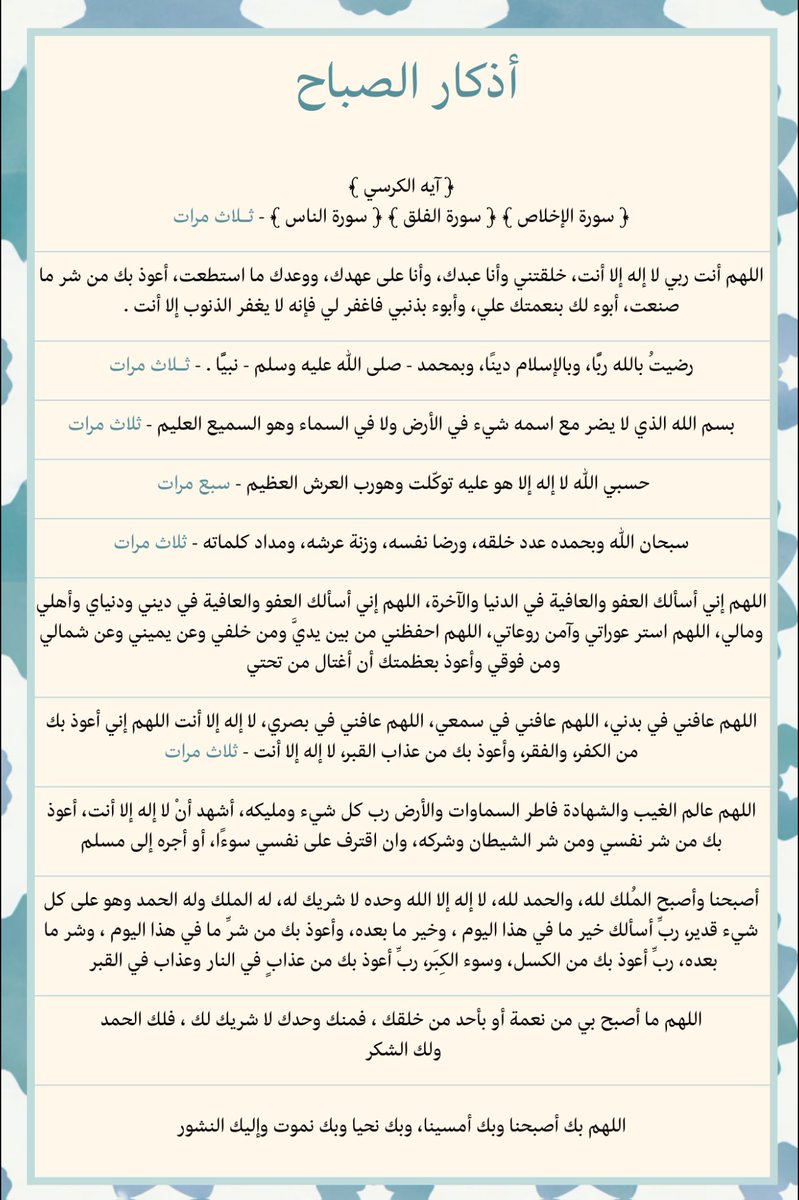 أذكار الصباح
﴿ آيه الكرسي ﴾
﴿ سورة الإخلاص ﴾ ﴿ سورة الفلق ﴾ ﴿ سورة الناس ﴾ - ثــلاث مرات
اللهم أنت ربي لا إله إلا أنت، خلقتني وأنا عبدك، وأنا على عهدك، ووعدك ما استطعت، أعوذ بك من شر ما
صنعت، أبوء لك بنعمتك علي، وأبوء بذنبي فاغفر لي فإنه لا يغفر الذنوب إلا أنت .
رضيتُ بالله ربًّا، وبالإسلام دينًا، وبمحمد - صلى الله عليه وسلم - نبيًّا . - ثــلاث مرات
بسم الله الذي لا يضر مع اسمه شيء في الأرض ولا في السماء وهو السميع العليم - ثلاث مرات
حسبي الله لا إله إلا هو عليه توكّلت وهورب العرش العظيم - سبع مرات
سبحان الله وبحمده عدد خلقه، ورضا نفسه، وزنة عرشه، ومداد كلماته - ثلاث مرات
اللهم إني أسألك العفو والعافية في الدنيا والآخرة، اللهم إني أسألك العفو والعافية في ديني ودنياي وأهلي
ومالي، اللهم استر عوراتي وآمن روعاتي، اللهم احفظني من بين يديَّ ومن خلفي وعن يميني وعن شمالي
ومن فوقي وأعوذ بعظمتك أن أغتال من تحتي
اللهم عافني في بدني، اللهم عافني في سمعي، اللهم عافني في بصري، لا إله إلا أنت اللهم إني أعوذ بك
من الكفر، والفقر، وأعوذ بك من عذاب القبر، لا إله إلا أنت - ثلاث مرات
اللهم عالم الغيب والشهادة فاطر السماوات والأرض رب كل شيء ومليكه، أشهد أنْ لا إله إلا أنت، أعوذ
بك من شر نفسي ومن شر الشيطان وشركه، وان اقترف على نفسي سوءًا، أو أجره إلى مسلم
أصبحنا وأصبح المُلك لله، والحمد لله، لا إله إلا الله وحده لا شريك له، له الملك وله الحمد وهو على كل
شيء قدير، ربِّ أسألك خير ما في هذا اليوم ، وخير ما بعده، وأعوذ بك من شرِّ ما في هذا اليوم ، وشر ما
بعده، ربِّ أعوذ بك من الكسل، وسوء الكِبَر، ربِّ أعوذ بك من عذابٍ في النار وعذاب في القبر
اللهم ما أصبح بي من نعمة أو بأحد من خلقك ، فمنك وحدك لا شريك لك ، فلك الحمد
ولك الشكر
اللهم بك أصبحنا وبك أمسينا، وبك نحيا وبك نموت وإليك النشور